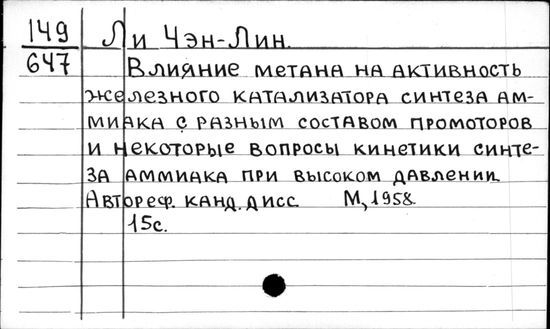 149 Ли Чэн-Лин.
647 Влияние метана на активность
железного катализатора синтеза ам-
миака с разным составом промоторов
и некоторые вопросы кинетики синте-
за аммиака при высоком давлении.
Автореф. канд. дисс. М, 1958.
15с.